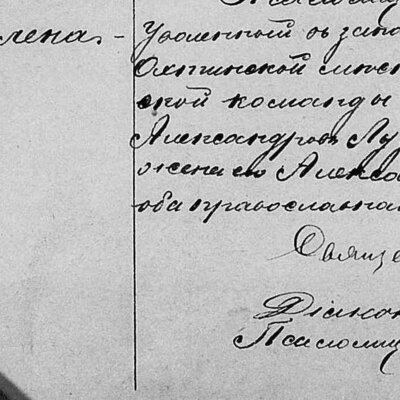 лена. -
Уволенный въ запа
Охтинской мѣст
ской команды
Александровъ Лу
жена его Алекса
оба православна
Священ
Діакон
Псаломщ